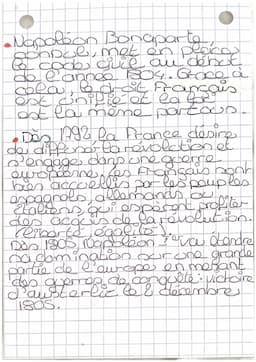 • Napoléon Bonaparte,
consul, met en places
le code civil au début
de l'année 1804. Grâce à
cela, le droit Français
est unifié et la loi
est la même partout.
• Dès 1792 la France désire
de diffusé la révolution et
s'engage dans une guerre
européenne. Les Français sont
bien accueillis par les peuples
espagnols, allemands ou
italiens qui espèrent profiter
des acquis de la révolution.
(liberté, égalité)
Dès 1805, Napoléon 1er va étandre
sa domination sur une grande
partie de l'europe en menant
des guerres de conquête: victoire
d'austerlitz le 2 décembre
1805.